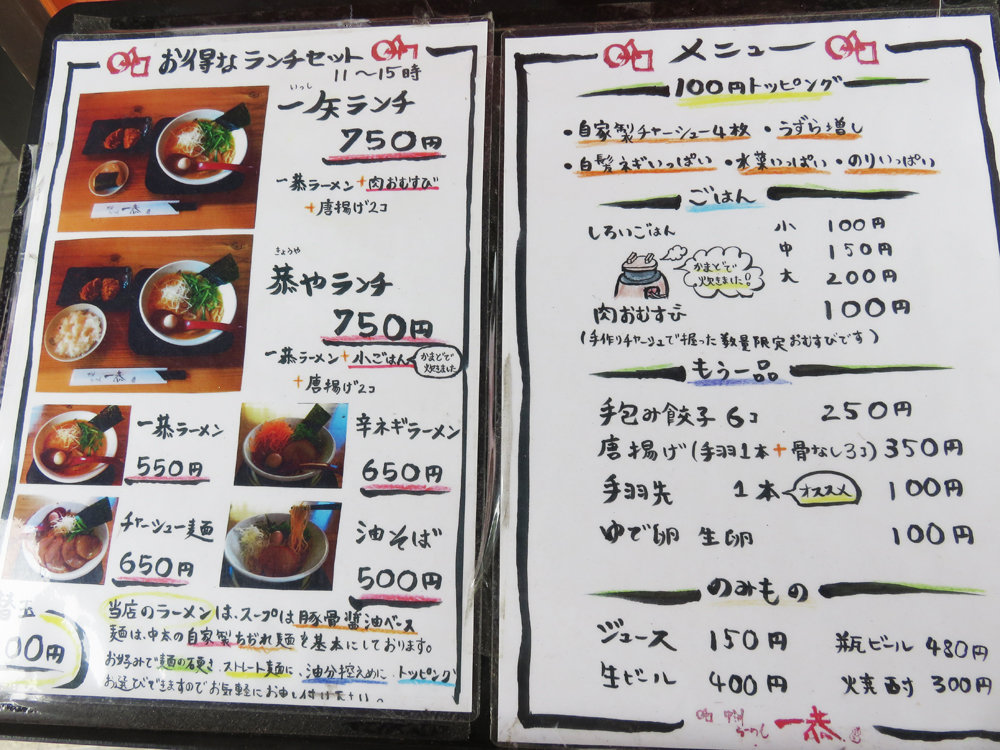 お得なランチセット
11~15時
いっし
一矢ランチ
750円
一恭ラーメン+肉おむすび
+唐揚げ2コ
きょうや
恭やランチ
750円
一恭ラーメン+小ごはん
かまどで
炊きました
+唐揚げ2コ
一恭ラーメン
550円
辛ネギラーメン
650円
チャーシュー麺
650円
油そば
500円
替玉
00円
当店のラーメンは、スープは豚骨醤油ベース
麺は、中太の自家製ちぢれ麺を基本にしております。
お好みで麺の硬さ、ストレート麺に、油分控えめに、トッピング
お選びできますのでお気軽にお申し付け下さい。
メニュー
100円トッピング
・自家製チャーシュー4枚 ・うずら増し
・白髪ネギいっぱい ・水菜いっぱい ・のりいっぱい
ごはん
しろいごはん 小 100円
中 150円
大 200円
かまどで
炊きました!
肉おむすび 100円
(手作りチャーシュで握った数量限定おむすびです)
もう一品
手包み餃子 6コ 250円
唐揚げ(手羽1本+骨なし3コ)350円
手羽先 1本 オススメ 100円
ゆで卵 生卵 100円
のみもの
ジュース 150円 瓶ビール 480円
生ビール 400円 焼酎 300円
らーめん 一恭